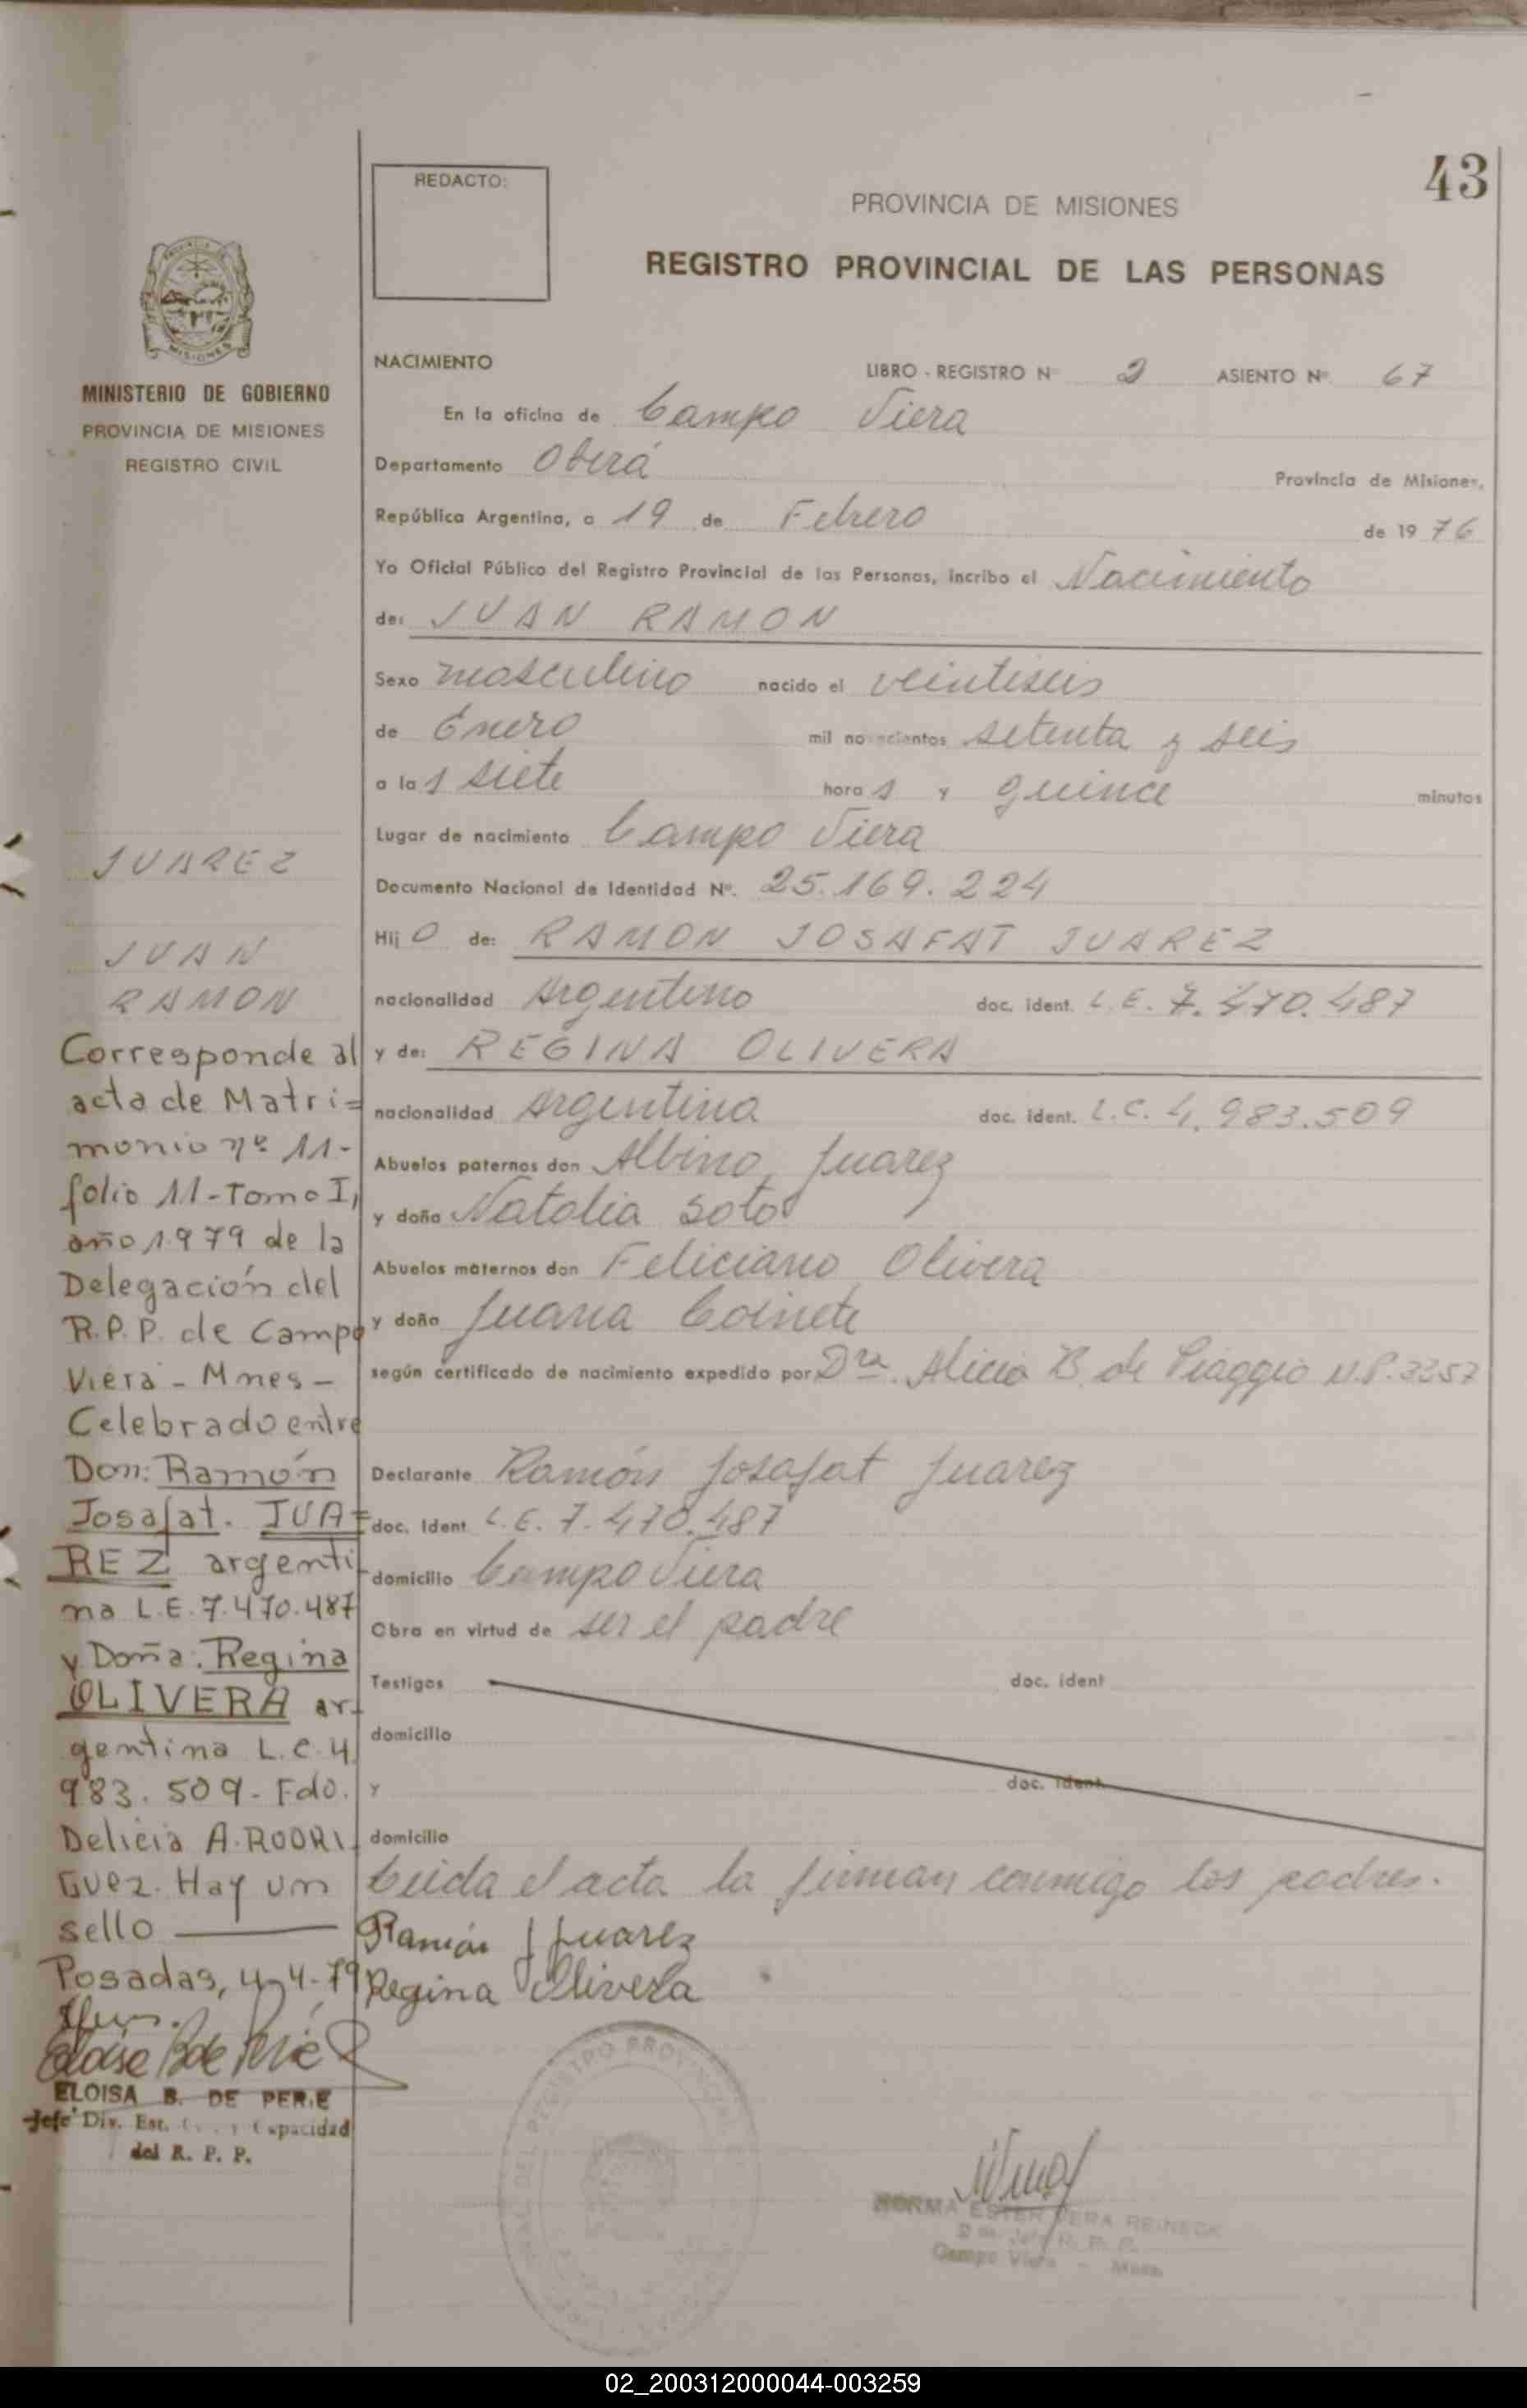 43
REDACTO:
PROVINCIA DE MISIONES
REGISTRO PROVINCIAL DE LAS PERSONAS
MISIONES
MINISTERIO DE GOBIERNO
PROVINCIA DE MISIONES
REGISTRO CIVIL
NACIMIENTO
LIBRO - REGISTRO Nº 2 ASIENTO Nº 67
En la oficina de Campo Viera
Departamento Oberá Provincia de Misiones,
República Argentina, a 19 de Febrero de 1976
Yo Oficial Público del Registro Provincial de las Personas, incribo el Nacimiento
de: JUAN RAMON
Sexo masculino nacido el veintiseis
de Enero mil novecientos setenta y seis
a las siete horas y quince minutos
Lugar de nacimiento Campo Viera
Documento Nacional de Identidad Nº. 25.169.224
Hijo de: RAMON JOSAFAT JUAREZ
nacionalidad Argentino doc. ident. L.E. 7.470.487
y de: REGINA OLIVERA
nacionalidad Argentina doc. ident. L.C. 4.983.509
Abuelos paternos don Albino Juarez
y doña Natalia Soto
Abuelos maternos don Feliciano Olivera
y doña Juana
según certificado de nacimiento expedido por Dra. Alicia B. de Piaggio M.P. 3357
Declarante Ramón Josafat Juarez
doc. ident L.E. 7.470.487
domicilio Campo Viera
Obra en virtud de ser el padre
Testigos doc. ident
domicilio
y doc. ident.
domicilio
Leida el acta la firman conmigo los padres.
Ramón J Juarez
Regina Olivera
JUAREZ
JUAN
RAMON
Corresponde al
acta de Matri=
monio nº 11-
folio 11-Tomo I,
año 1979 de la
Delegación del
R.P.P. de Campo
Viera - Mnes -
Celebrado entre
Don: Ramón
Josafat. JUA=
REZ argenti
no L.E. 7.470.487
y Doña: Regina
OLIVERA ar-
gentina L.C. 4.
983.509- Fdo.
Delicia A. RODRI
GUEZ. Hay un
sello
Posadas, 4-4-79
ELOISA B. DE PERIE
Jefe Div. Est. Capacidad
del R. P. P.
NORMA ESTER VERA REINECK
R. P. P.
Campo Viera - Mnes.
02_200312000044-003259